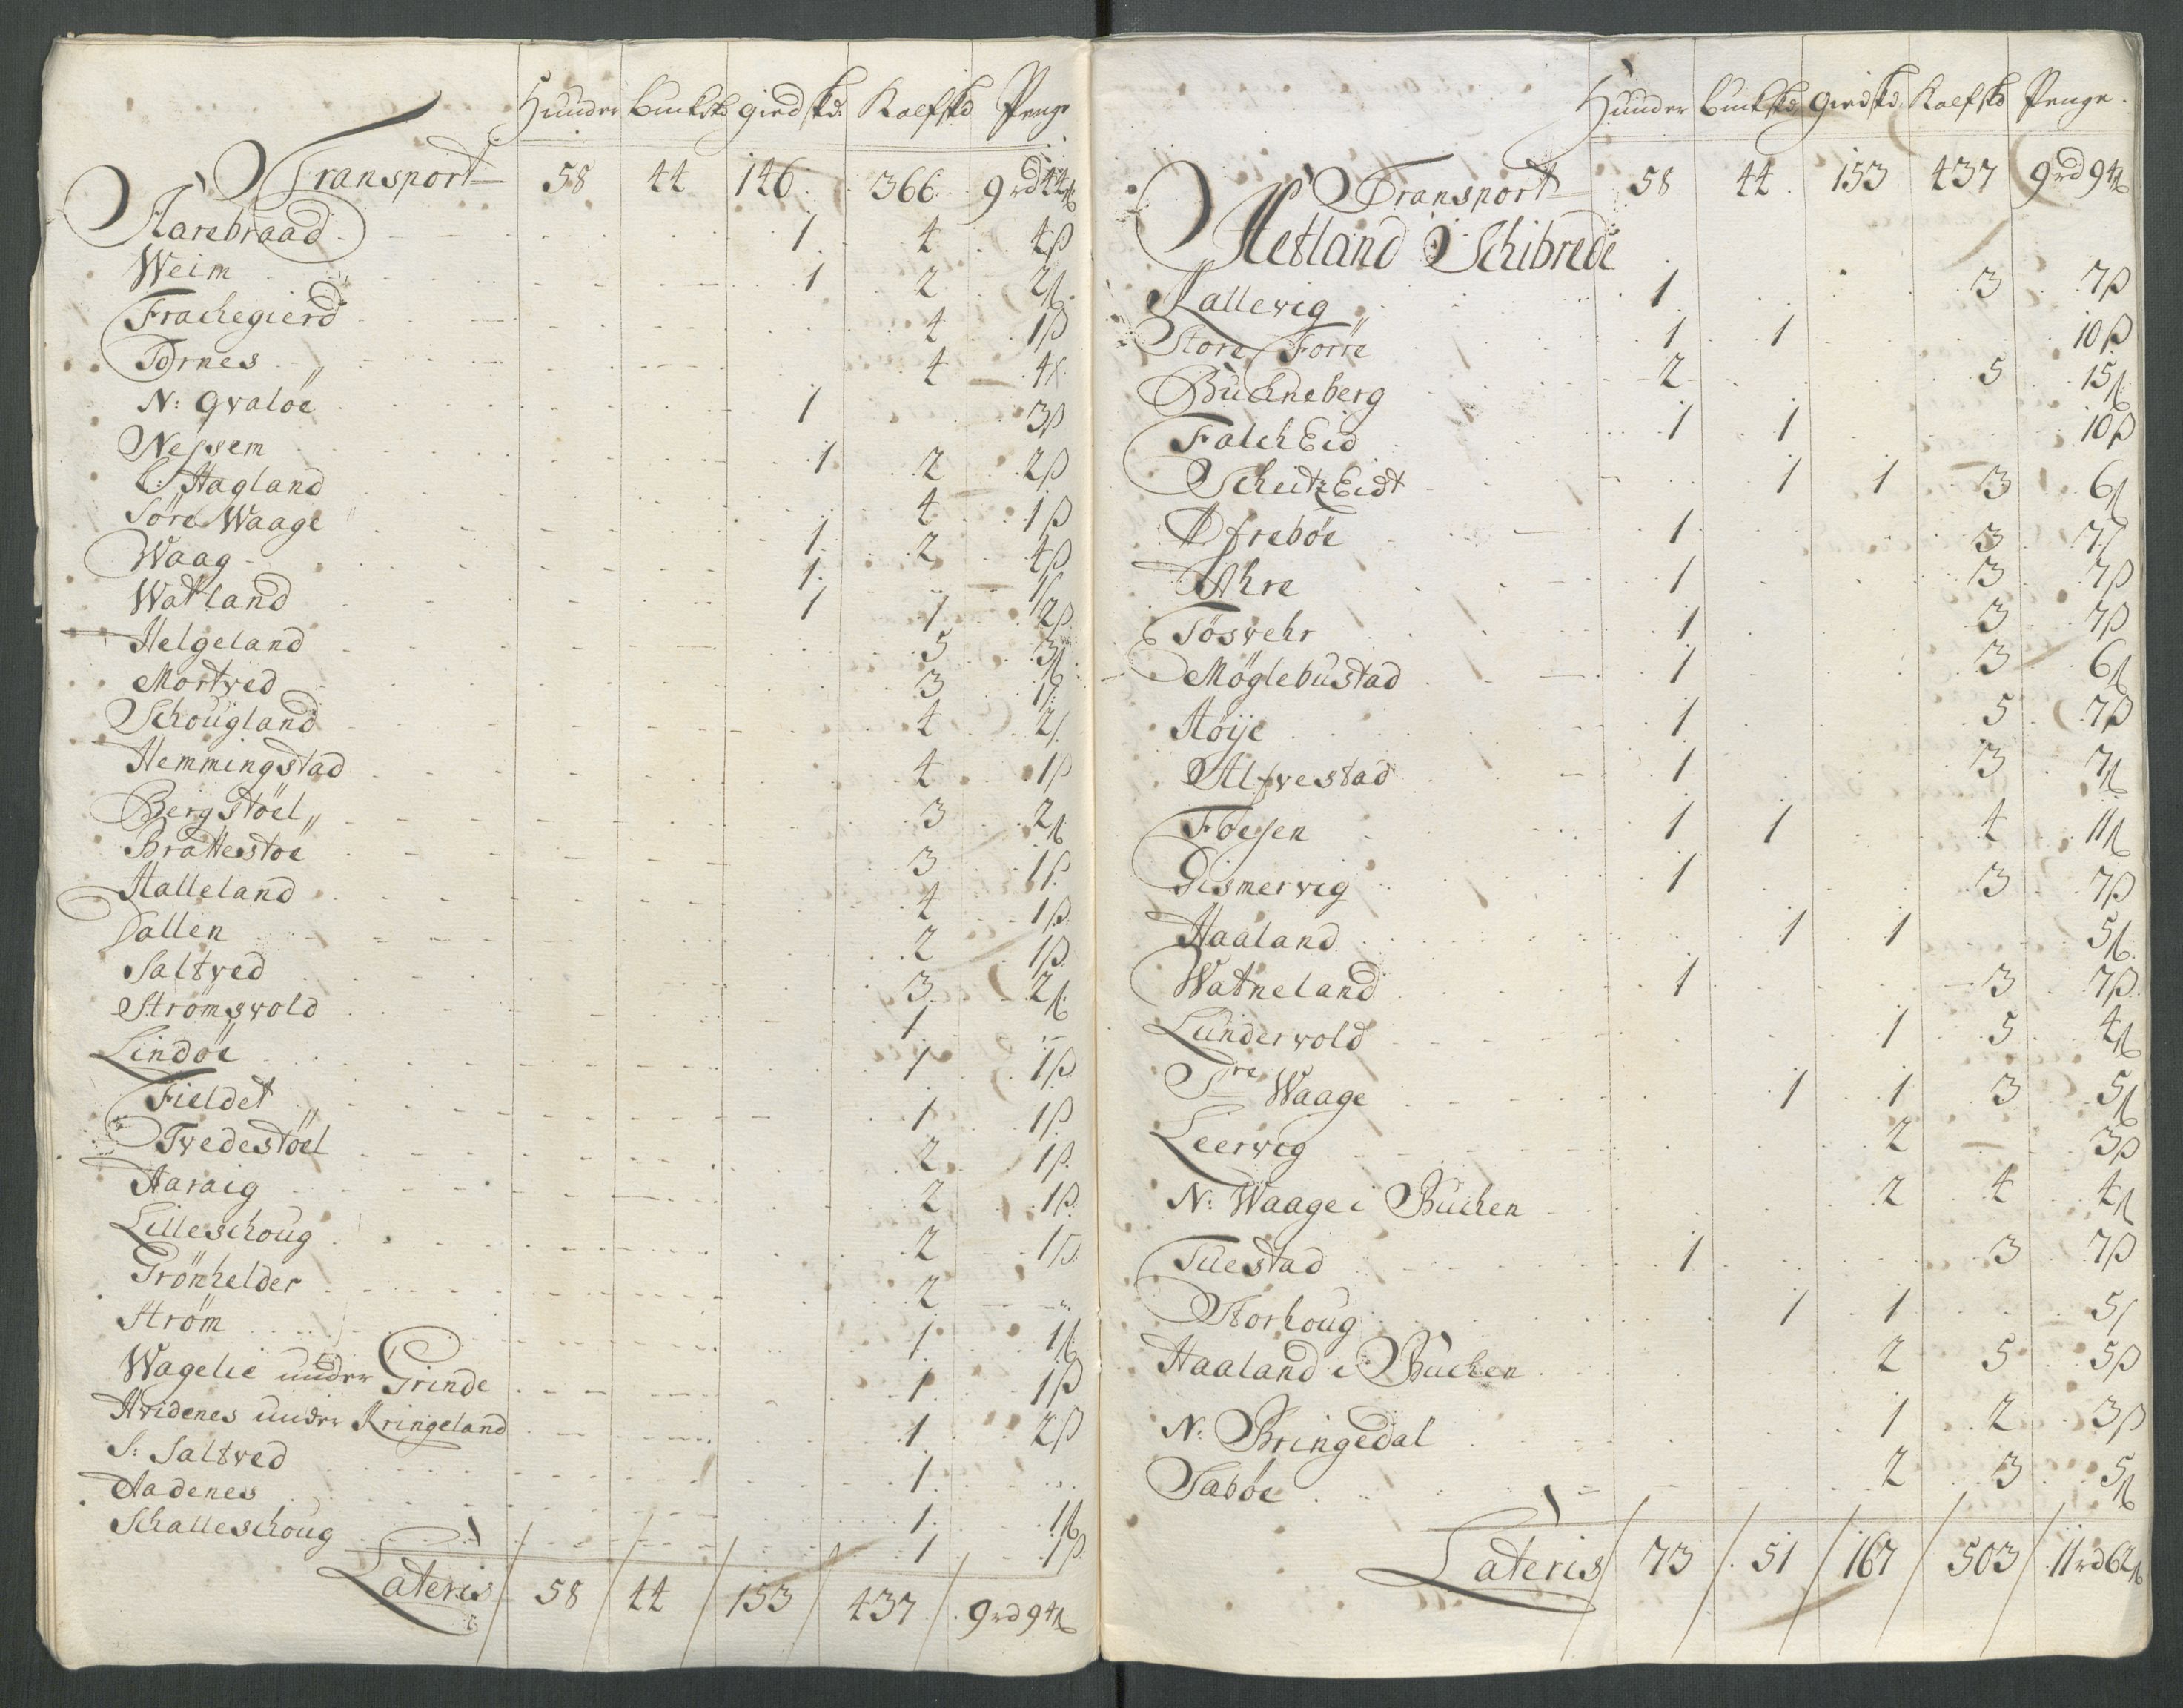 Huuder Buckskd giedskd: Kalfskd Penge
Transport 58 44 146 366 9rd 44ß
Aarebraad 1 4 4ß
Weim 1 2 2ß
Frachegierd 4 1ß
Tornes 4 4ß
N: Qvaløe 1 3ß
Nessem 1 2 2ß
L: Hagland 4 1ß
Söre Waage 1 2 4ß
Waag 1 1ß
Watland 1 1 2ß
Helgeland 5 3ß
Mortved 3 1ß
Schougland 4 2ß
Hemmingstad 4 1ß
Bergstöel 3 2ß
Brattestöe 3 1ß
Halleland 4 1ß
Dallen 2 1ß
Saltved 3 2ß
Strömsvold 1
Lindöe 1 1ß
Fieldet 1 1ß
Tvedestöel 2 1ß
Haraig 2 1ß
Lilleschoug 2 1ß
Grönhelder 2
Ström 1 1ß
Wagelie under Grinde 1 1ß
Hvidenes under Kringeland 1 2ß
S: Saltved 1
Aadenes 1 1ß
Schalleschoug 1 1ß
Lateris 58 44 153 437 9rd 94ß
Huuder Buckskd giedskd Kalfskd Penge
Transport 58 44 153 437 9rd 94ß
Hetland Schibrede
Kallevig 1 3 7ß
Store Förre 1 1 10ß
Buckneberg 2 5 15ß
FalchEid 1 1 10ß
ScheitzEidt 1 1 3 6ß
Afreböe 1 3 7ß
Ahre 1 3 7ß
Tösvehr 1 3 7ß
Möglebustad 1 3 6ß
Höije 1 5 7ß
Alfvestad 1 3 7ß
Foesen 1 1 4 11ß
Gismervig 1 3 7ß
Haaland 1 1 5ß
Watneland 1 3 7ß
Lundervold 1 5 4ß
Waage 1 1 3 5ß
Leervig 2 3ß
N: Waage i Buchen 2 4 4ß
Tuestad 1 3 7ß
Storhoug 1 1 5ß
Haaland i Buchen 2 5 5ß
N: Bringedal 1 2 3ß
Saböe 2 3 5ß
Lateris 73 51 167 503 11rd 62ß